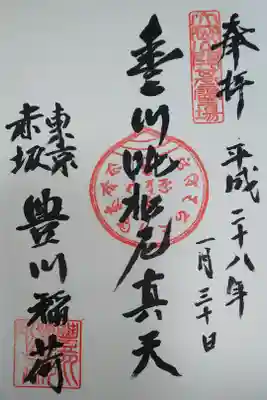 奉拝
平成二十八年
一月三十日
豊川吒枳尼真天
東京
赤坂
豊川稲荷